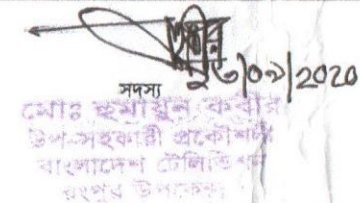 ১৬/০৯/2020
সদস্য
মোঃ হুমায়ুন কবীর
উপ-সহকারী প্রকৌশলী
বাংলাদেশ টেলিভিশন
রংপুর উপকেন্দ্র